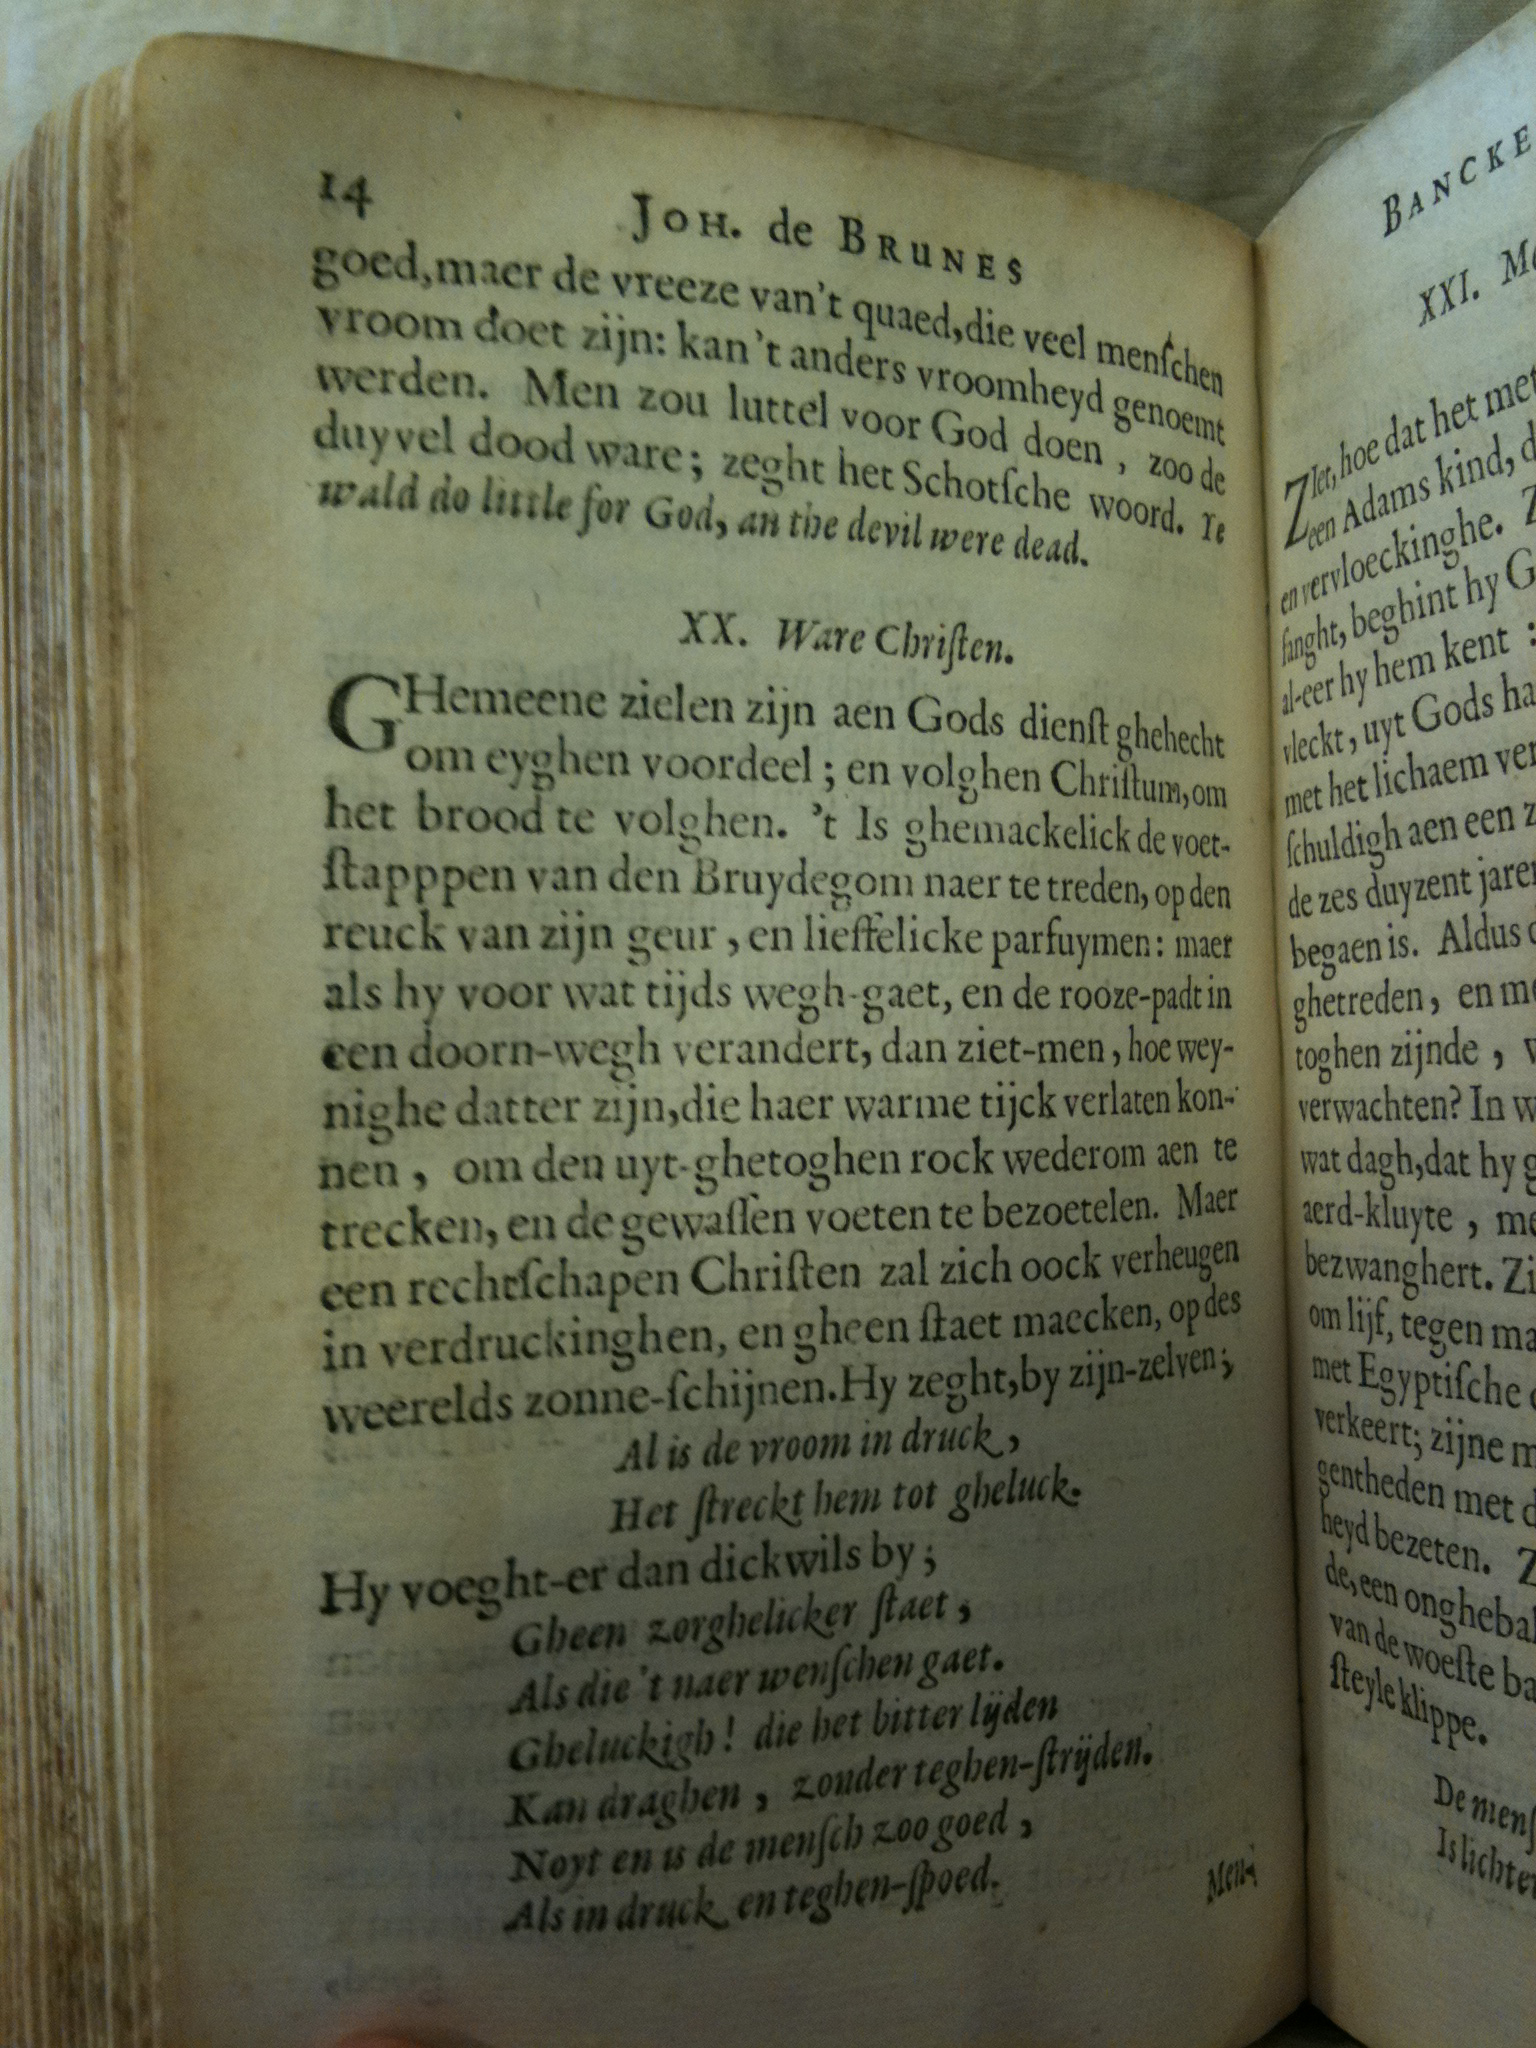 14
JOH. de BRUNES
goed, maer de vreeze van't quaed, die veel menſchen
vroom doet zijn: kan 't anders vroomheyd genoemt
werden. Men zou luttel voor God doen, zoo de
duyvel dood ware; zeght het Schotſche woord. Ye
wald do little for God, an the devil were dead.
XX. Ware Chriſten.
GHemeene zielen zijn aen Gods dienſt ghehecht
om eyghen voordeel; en volghen Chriſtum, om
het brood te volghen. 't Is ghemackelick de voet-
ſtapppen van den Bruydegom naer te treden, op den
reuck van zijn geur, en lieffelicke parfuymen: maer
als hy voor wat tijds wegh-gaet, en de rooze-padt in
een doorn-wegh verandert, dan ziet-men, hoe wey-
nighe datter zijn, die haer warme tijck verlaten kon-
nen, om den uyt-ghetoghen rock wederom aen te
trecken, en de gewaſſen voeten te bezoetelen. Maer
een rechtſchapen Chriſten zal zich oock verheugen
in verdruckinghen, en gheen ſtaet maecken, op des
weerelds zonne-ſchijnen. Hy zeght, by zijn-zelven;
Al is de vroom in druck,
Het ſtreckt hem tot gheluck.
Hy voeght-er dan dickwils by;
Gheen zorghelicker ſtaet,
Als die 't naer wenſchen gaet.
Gheluckigh! die het bitter lijden
Kan draghen, zonder teghen-ſtrijden.
Noyt en is de menſch zoo goed,
Als in druck en teghen-ſpoed.
Men-
BANCKE
XXI.
Ziet, hoe dat het met
een Adams kind,
en vervloeckinghe.
fanght, beghint hy
al-eer hy hem kent :
vleckt, uyt Gods
met het lichaem
ſchuldigh aen een
de zes duyzent
begaen is. Aldus
ghetreden, en
toghen zijnde,
verwachten? In
wat dagh, dat hy
aerd-kluyte,
bezwanghert.
om lijf, tegen
met Egyptiſche
verkeert; zijne
gentheden met
heyd bezeten.
de, een
van de woeſte
ſteyle klippe.
De
Is